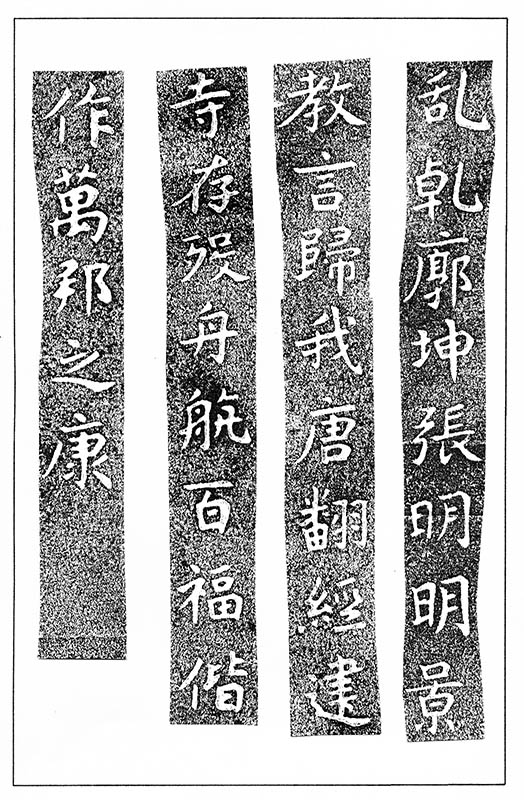 乱乹廓坤張明明景
教言歸我唐翻經建
寺存歿舟航百福偕
作萬邦之康